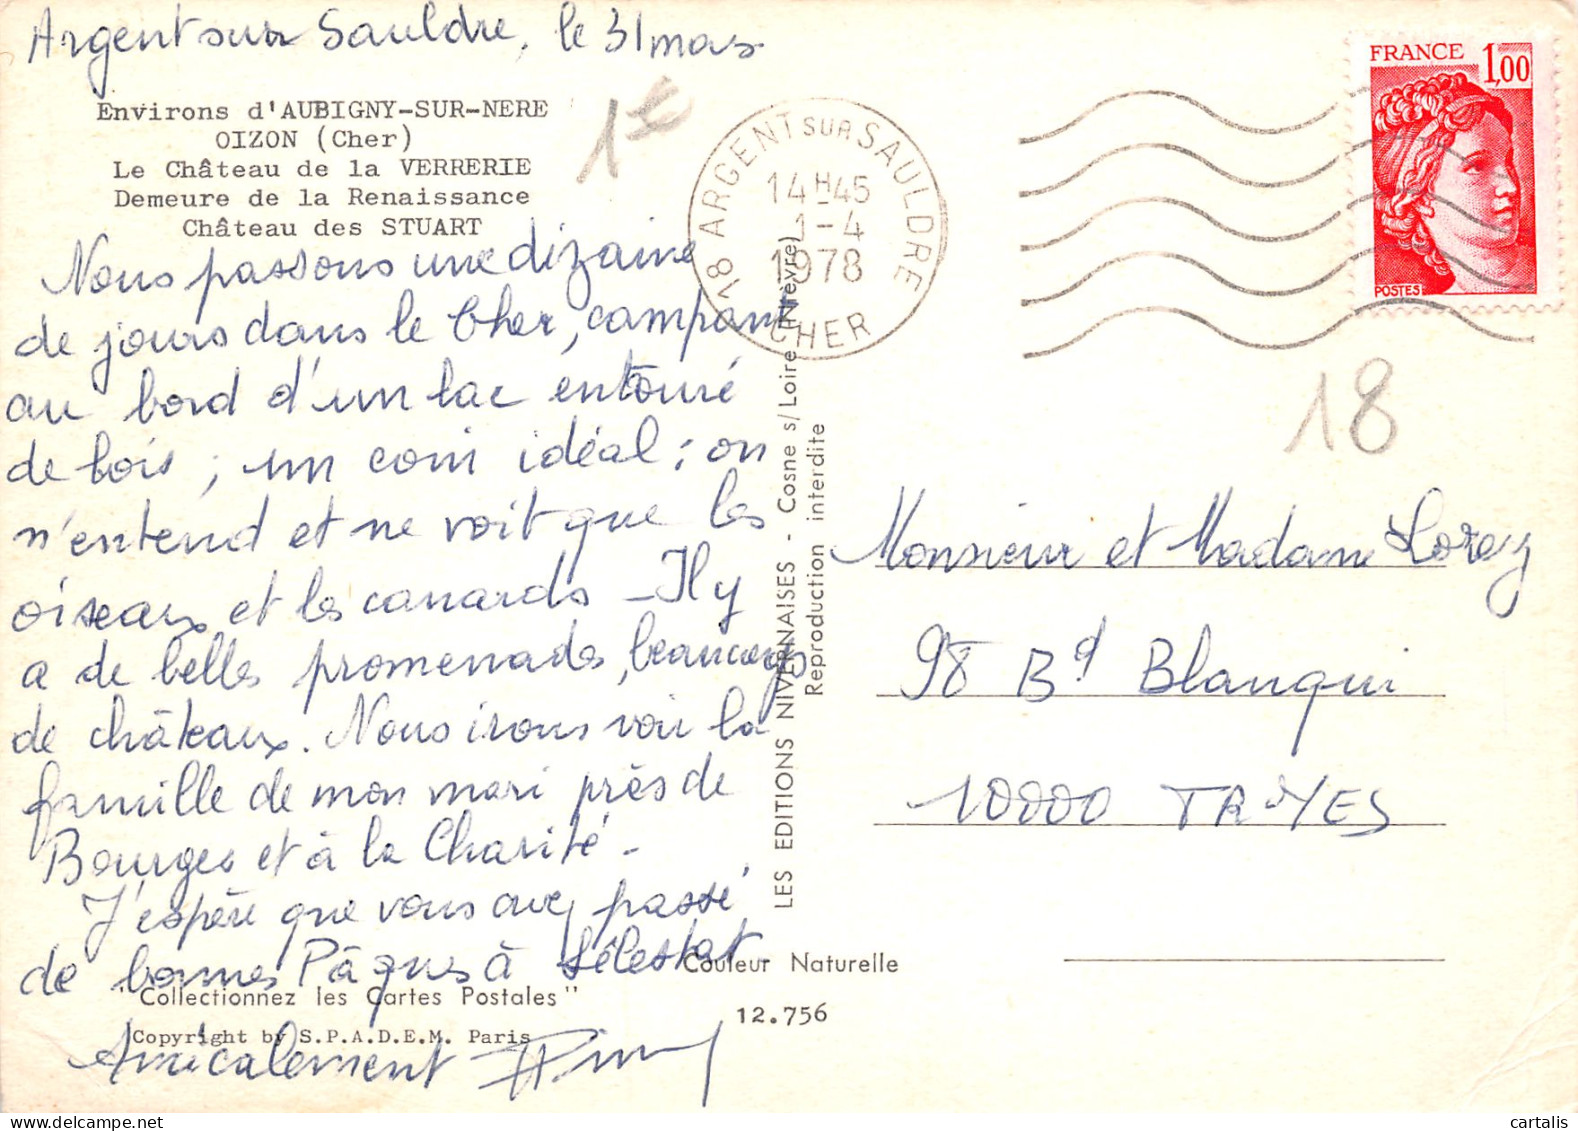 Argent sur Sauldre, le 31 mars
Environs d'AUBIGNY-SUR-NERE
OIZON (Cher)
Le Château de la VERRERIE
Demeure de la Renaissance
Château des STUART
Nous passons une dizaine
de jours dans le Cher, campant
au bord d'un lac entouré
de bois ; un coin idéal : on
n'entend et ne voit que les
oiseaux et les canards – Il y
a de belles promenades, beaucoup
de châteaux. Nous irons voir la
famille de mon mari près de
Bourges et à la Charité –
J'espère que vous avez passé
de bonnes Pâques à Sélestat
"Collectionnez les Cartes Postales"
Copyright by S.P.A.D.E.M. Paris
Amicalement
Couleur Naturelle
12.756
LES EDITIONS NIVERNAISES - Cosne s/ Loire (Nièvre)
Reproduction interdite
1€
18 ARGENT SUR SAULDRE
14H45
1-4
1978
CHER
FRANCE 1,00
POSTES
18
Monsieur et Madame Lorez
98 Bd Blanqui
10000 TROYES
cartalis